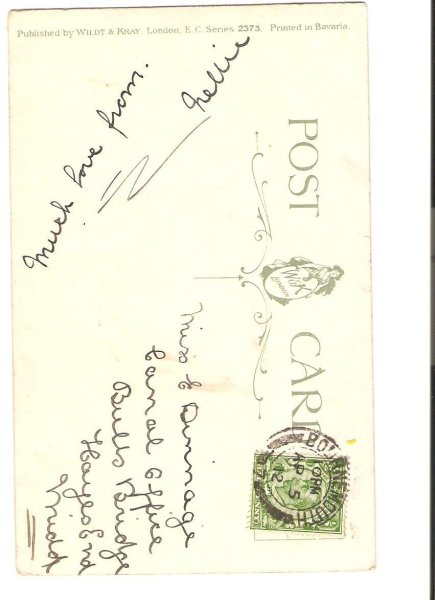 Published by WILDT & KRAY. London, E.C. Series 2375. Printed in Bavaria.
POST CARD
W&K
LONDON
Much love from.
Nellie
Miss E Dunnage
Canal Office
Bulls Bridge
Hayes End
Midd
BOURNEMOUTH
AP 5
12